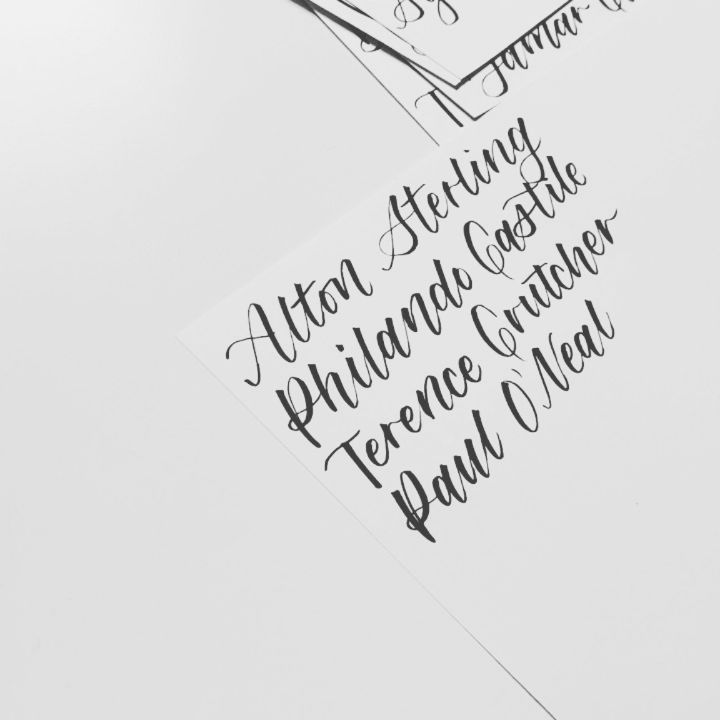 Jamar
Alton Sterling
Philando Castile
Terence Crutcher
Paul O'Neal